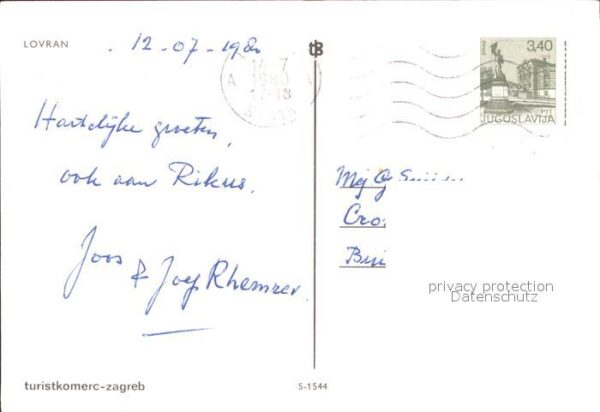 LOVRAN
12-07-1980
tB
14-7
A 1980
17-18
3,40
JUGOSLAVIJA
Hartelijke groeten,
ook aan Rikus.
Joos
& Joep
Mej
Cro
privacy protection
Datenschutz
turistkomerc-zagreb
S-1544